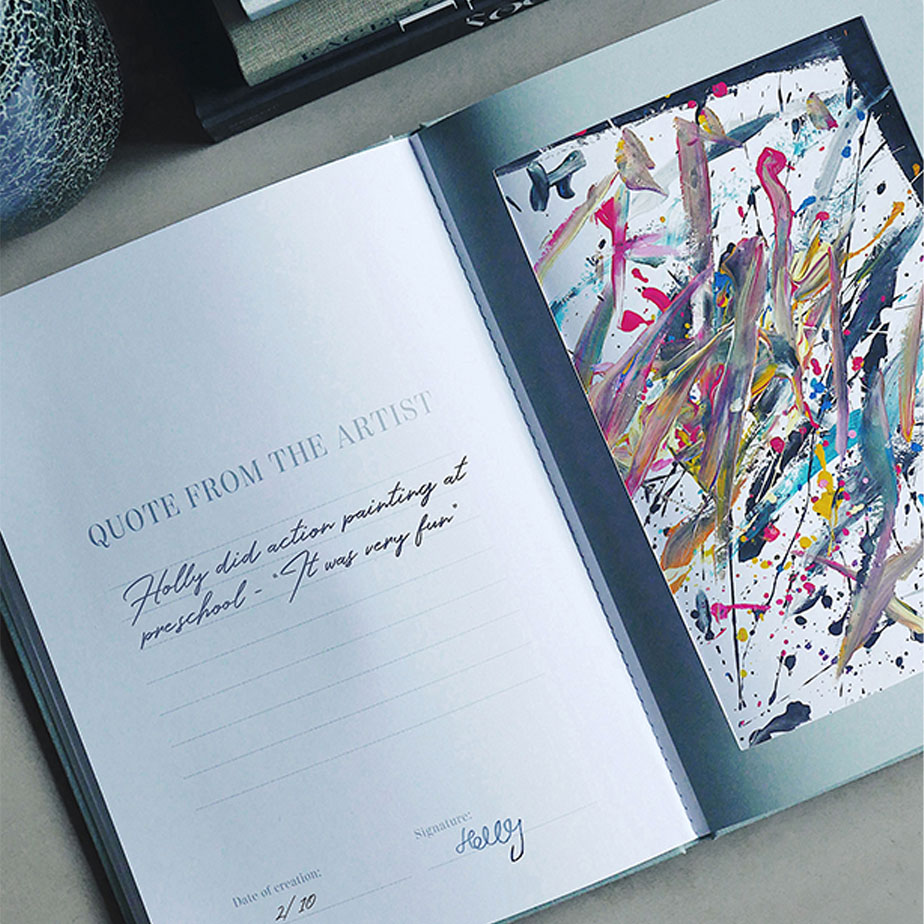 QUOTE FROM THE ARTIST
Holly did action painting at
preschool - "It was very fun"
Signature:
Holly
Date of creation:
2/10